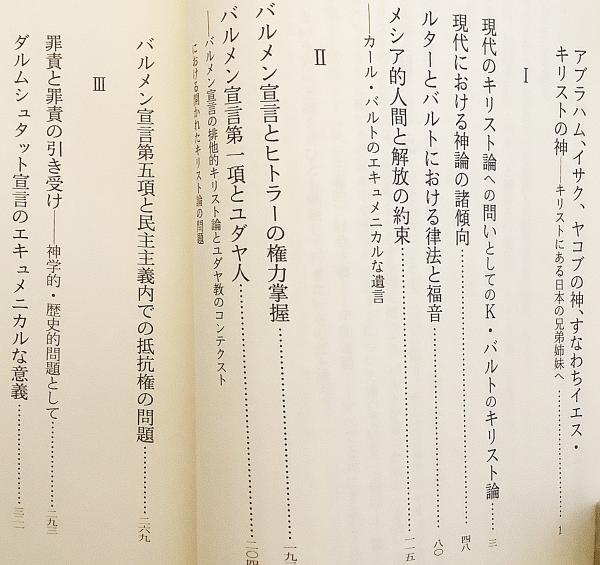 アブラハム、イサク、ヤコブの神、すなわちイエス・
キリストの神——キリストにある日本の兄弟姉妹へ…………1
Ⅰ
現代のキリスト論への問いとしてのK・バルトのキリスト論……三
現代における神論の諸傾向……………………四八
ルターとバルトにおける律法と福音……………………八〇
メシア的人間と解放の約束……………………一一五
——カール・バルトのエキュメニカルな遺言
Ⅱ
バルメン宣言とヒトラーの権力掌握……………………一九
バルメン宣言第一項とユダヤ人……………………二〇四
——バルメン宣言の排他的キリスト論とユダヤ教のコンテクスト
における開かれたキリスト論の問題
バルメン宣言第五項と民主主義内での抵抗権の問題…………二六九
Ⅲ
罪責と罪責の引き受け——神学的・歴史的問題として…………二九三
ダルムシュタット宣言のエキュメニカルな意義……………………三二一